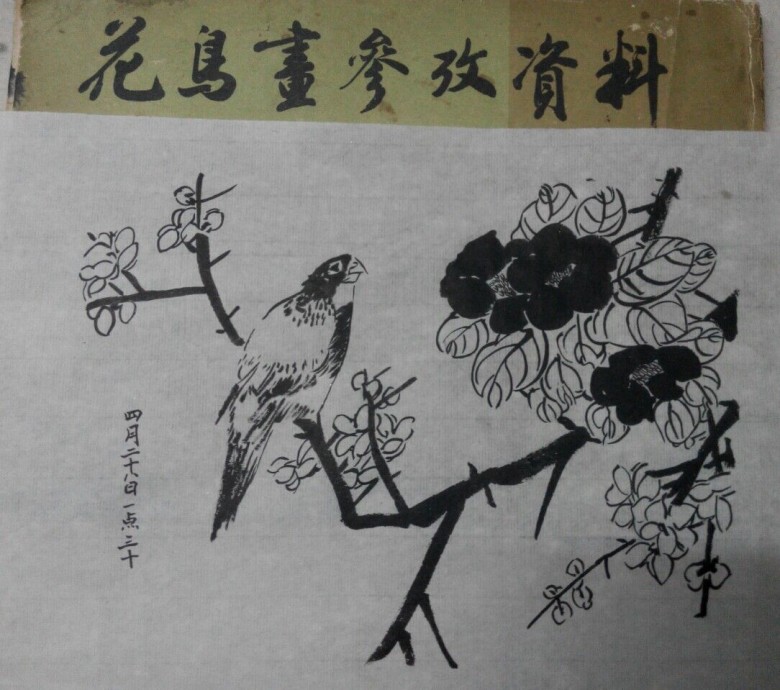 花鳥畫參攷資料
四月二十八日一点三十